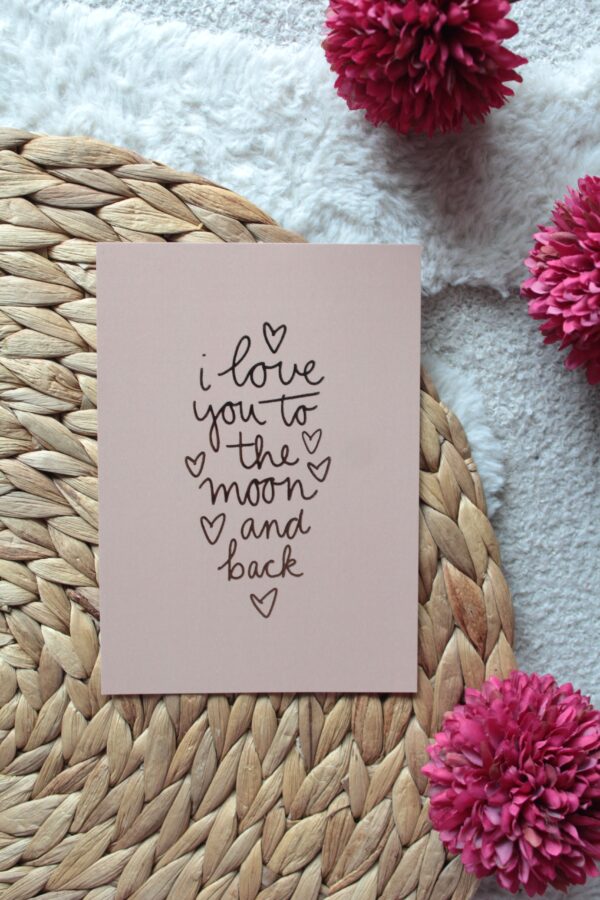 i love
you to
the
moon
and
back